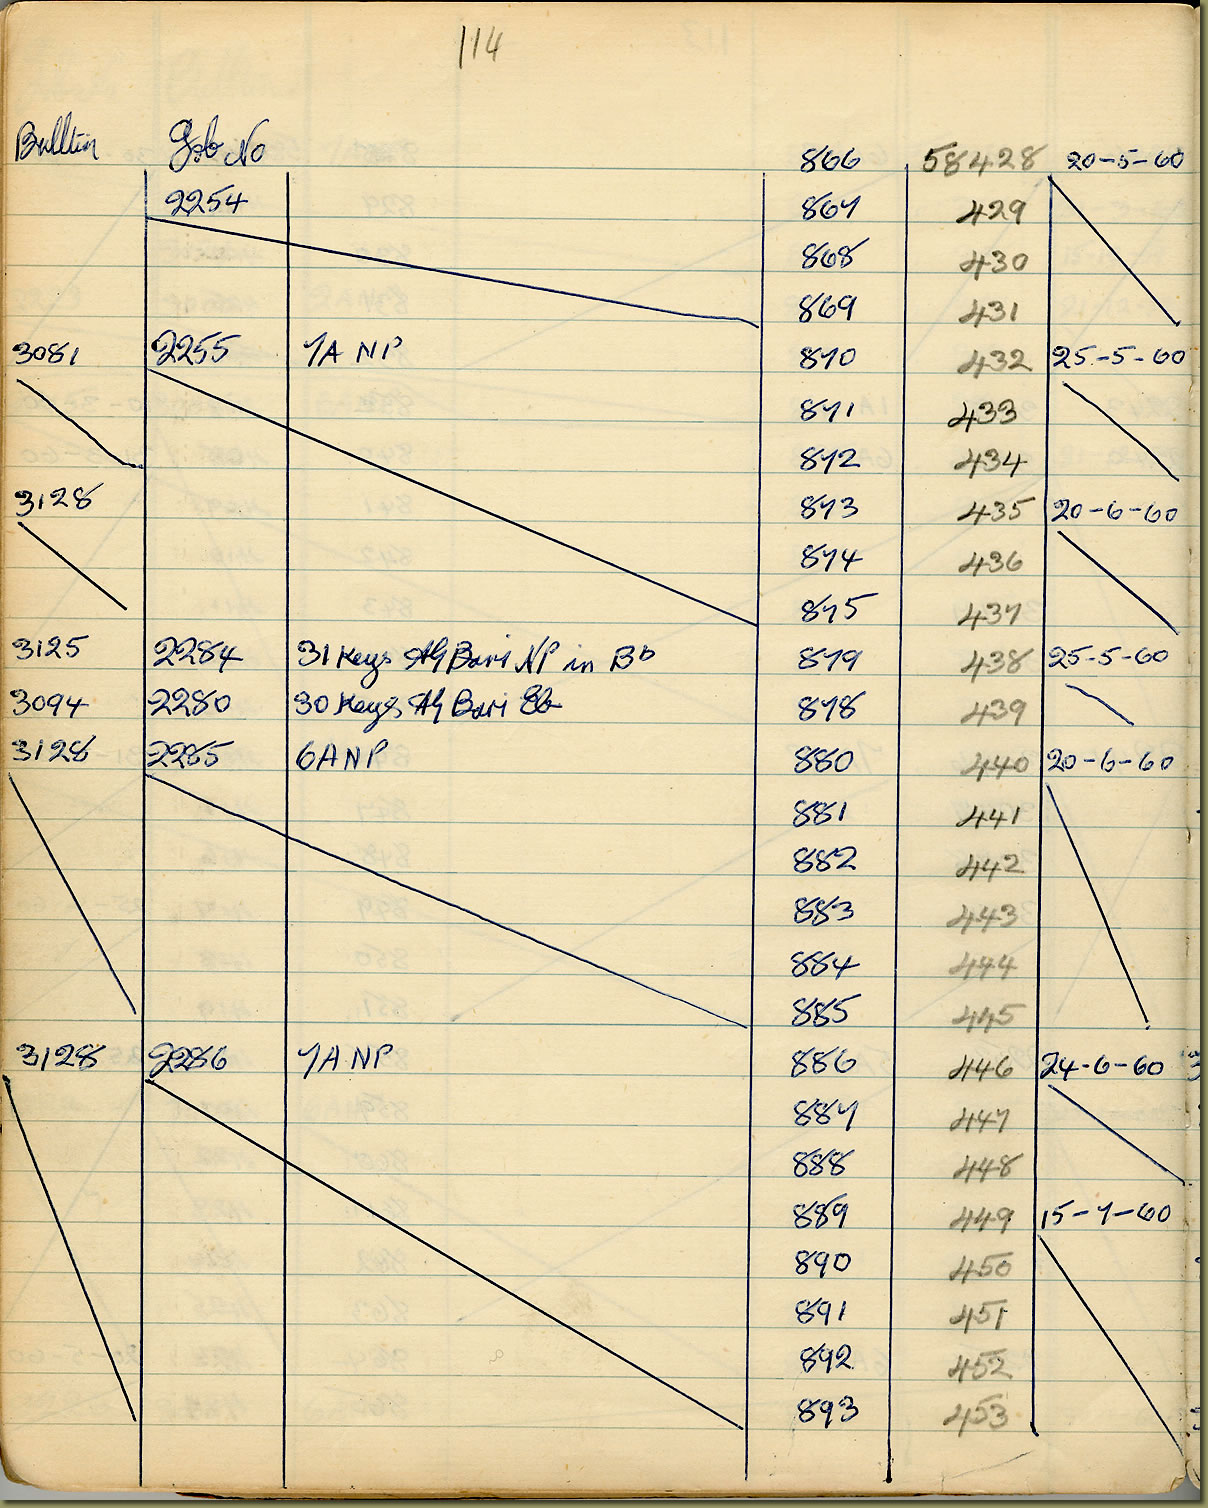 114
Bulltin Job No
866 58428 20-5-60
2254 867 429
868 430
869 431
3081 2255 7A NP 870 432 25-5-60
871 433
872 434
3128 873 435 20-6-60
874 436
875 437
3125 2284 31 Keys Ag Bari NP in Bb 879 438 25-5-60
3094 2280 30 Keys Ag Bari Bb 878 439
3128 2285 6A NP 880 440 20-6-60
881 441
882 442
883 443
884 444
885 445
3128 2286 7A NP 886 446 24-6-60
887 447
888 448
889 449 15-7-60
890 450
891 451
892 452
893 453